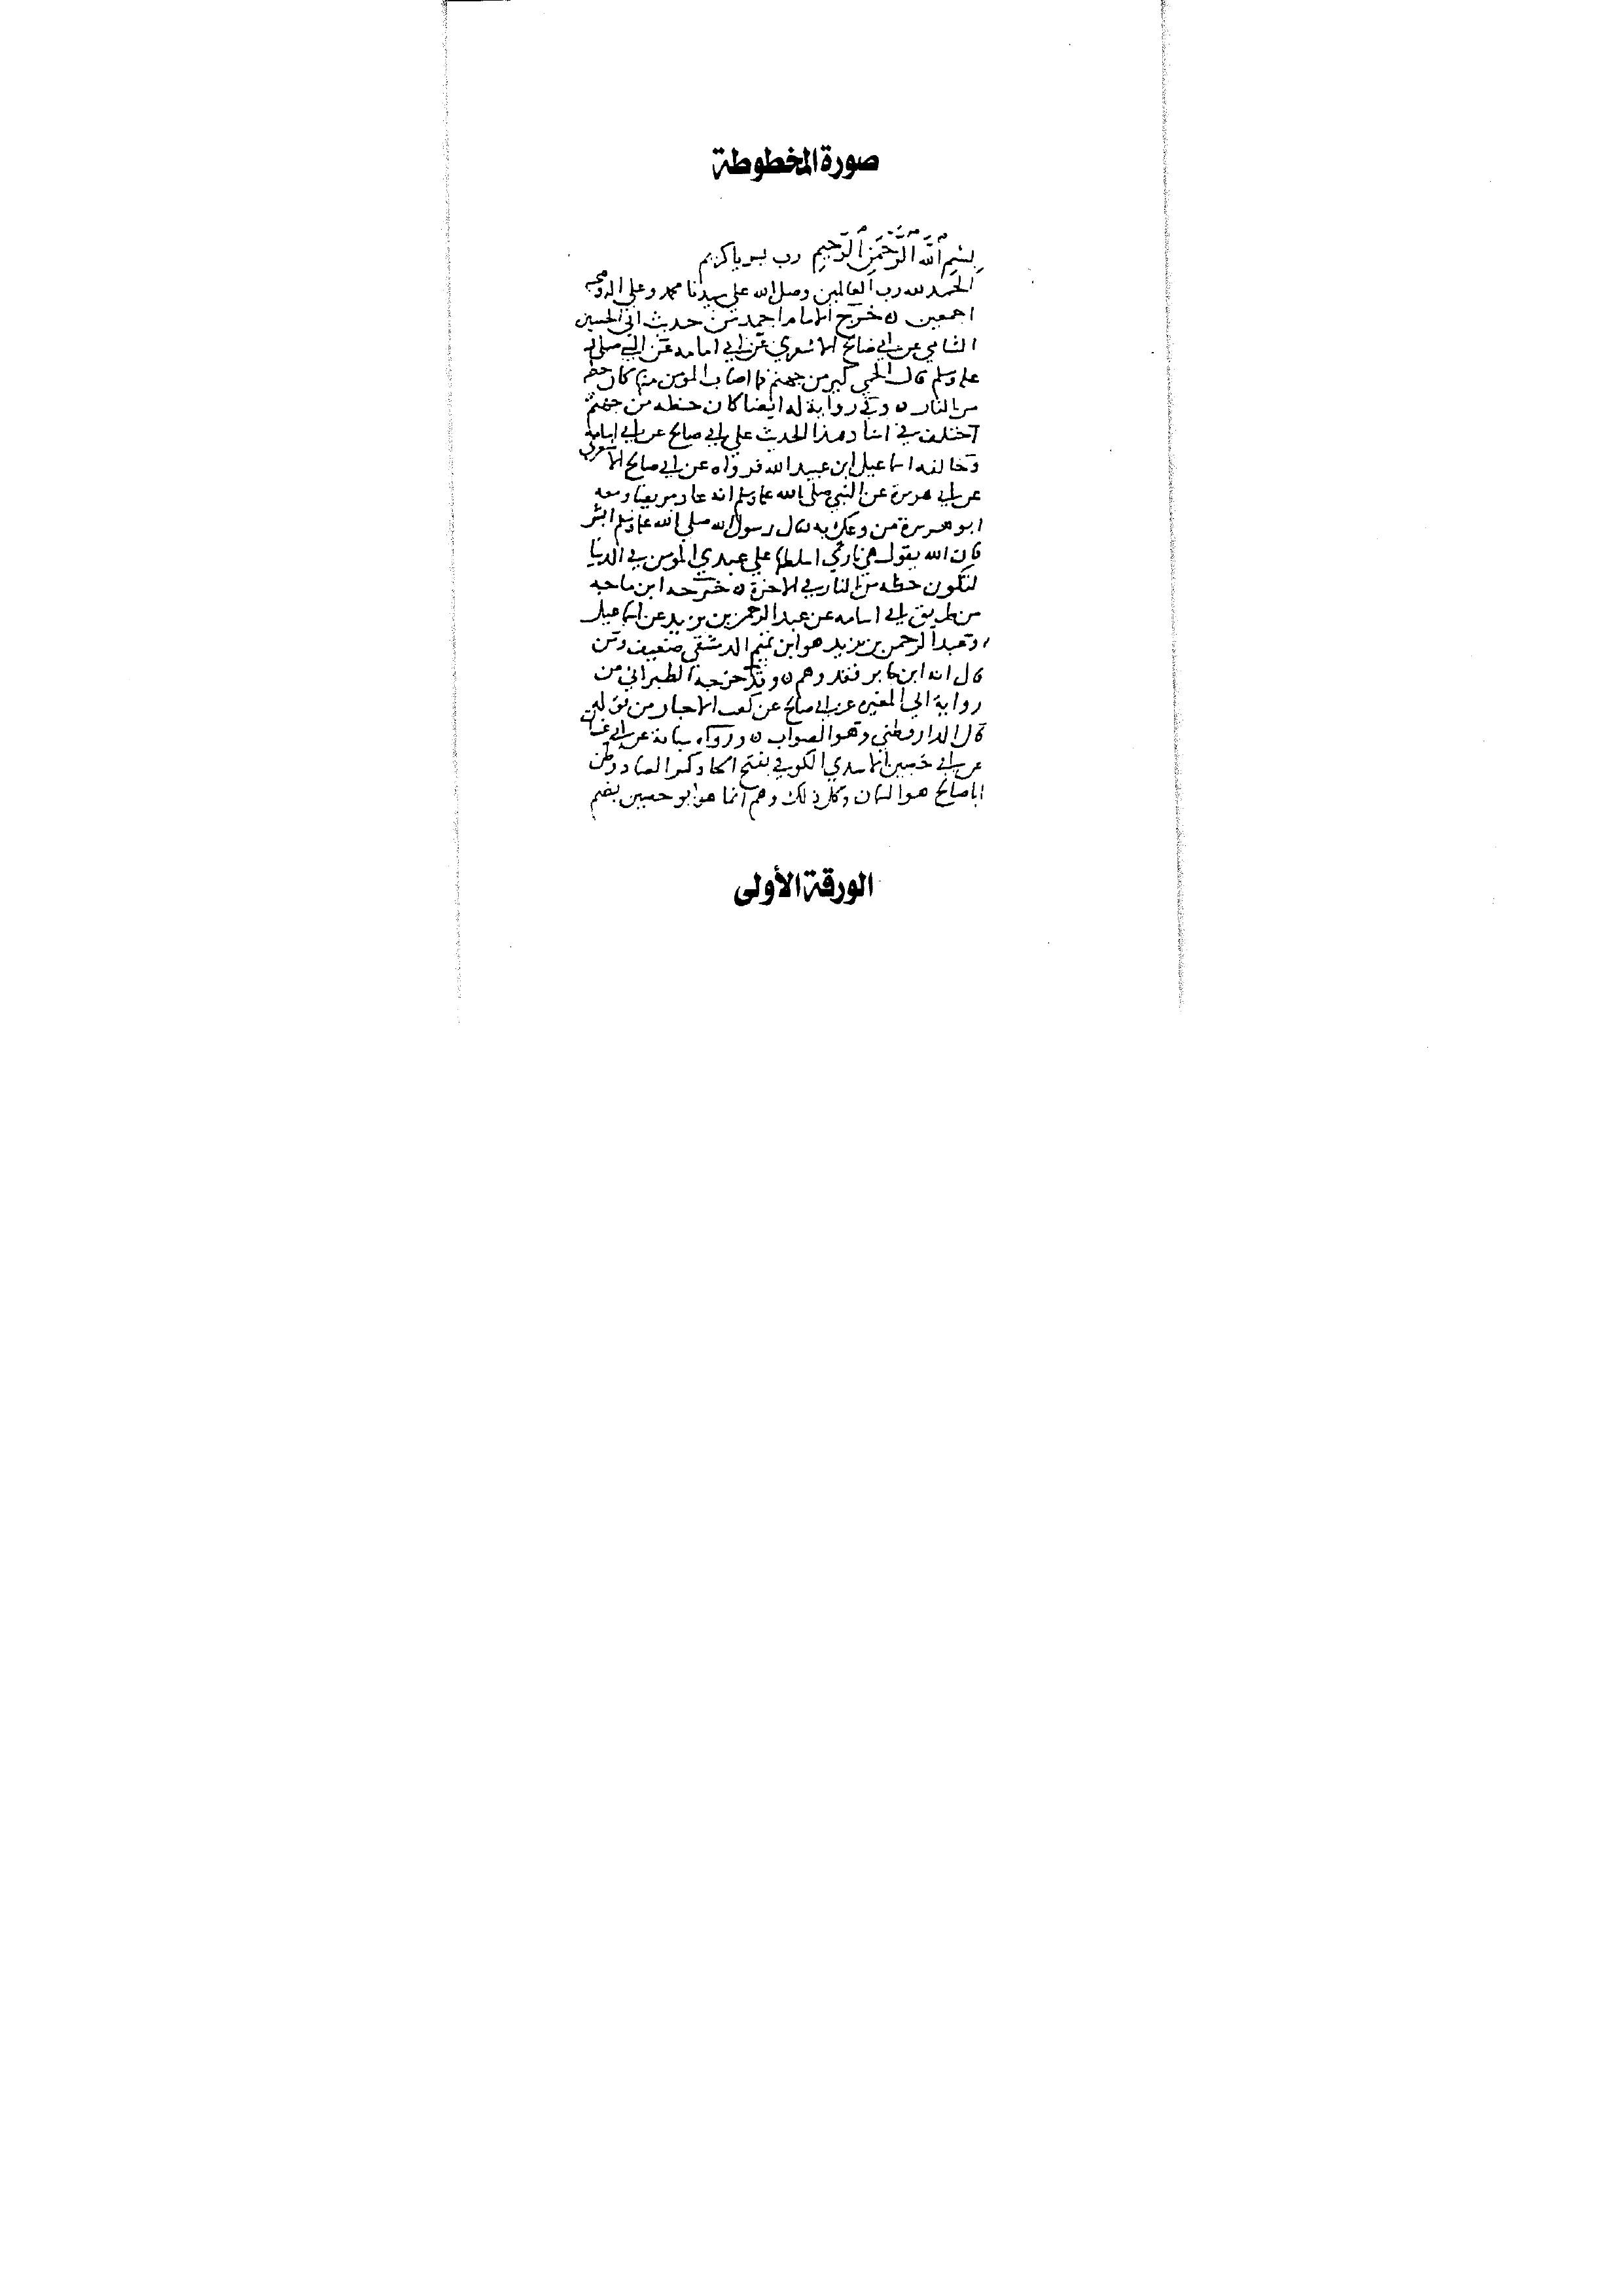 صورة المخطوطة
بِسْمِ اللَّهِ الرَّحْمَنِ الرَّحِيمِ رب يسر ياكريم
الحمد لله رب العالمين وصلى الله على سيدنا محمد وعلى اله وصحبه
اجمعين ن خرج الامام احمد من حديث ابي الحسين
الشامي عن ابي صالح الاشعري عن ابي امامه عن النبي صلى الله
عليه وسلم قال الحمى كير من جهنم فما اصاب المومن منها كان حظه
من النار ن وفي رواية له ايضا كان حظه من جهنم
اختلف في اسناد هذا الحديث على ابي صالح عن ابي امامة
وخالفه اسماعيل ابن عبيد الله فرواه عن ابي صالح الاشعري
عن ابي هريرة عن النبي صلى الله عليه وسلم انه عاد مريضا ومعه
ابو هريرة من وعك به فقال رسول الله صلى الله عليه وسلم ابشر
فان الله يقول هي ناري اسلطها على عبدي المومن في الدنيا
لتكون حظه من النار في الاخرة ن خرجه ابن ماجه
من طريق ابي اسامه عن عبد الرحمن بن يزيد عن اسماعيل
وعبد الرحمن بن يزيد هو ابن تميم الدمشقي ضعيف ومن
قال انه ابن جابر فقد وهم ن وقد خرجه الطبراني من
رواية ابي المغيره عن ابي صالح عن كعب الاحبار من قوله
قال الدارقطني وهو الصواب ن ورواه شبابة عن ابي غسان
عن ابي حصين الاسدي الكوفي بفتح الحا وكسر الصاد وظن
ابا صالح هو السمان وكل ذلك وهم انما هو ابو حصين بضم
الورقة الأولى